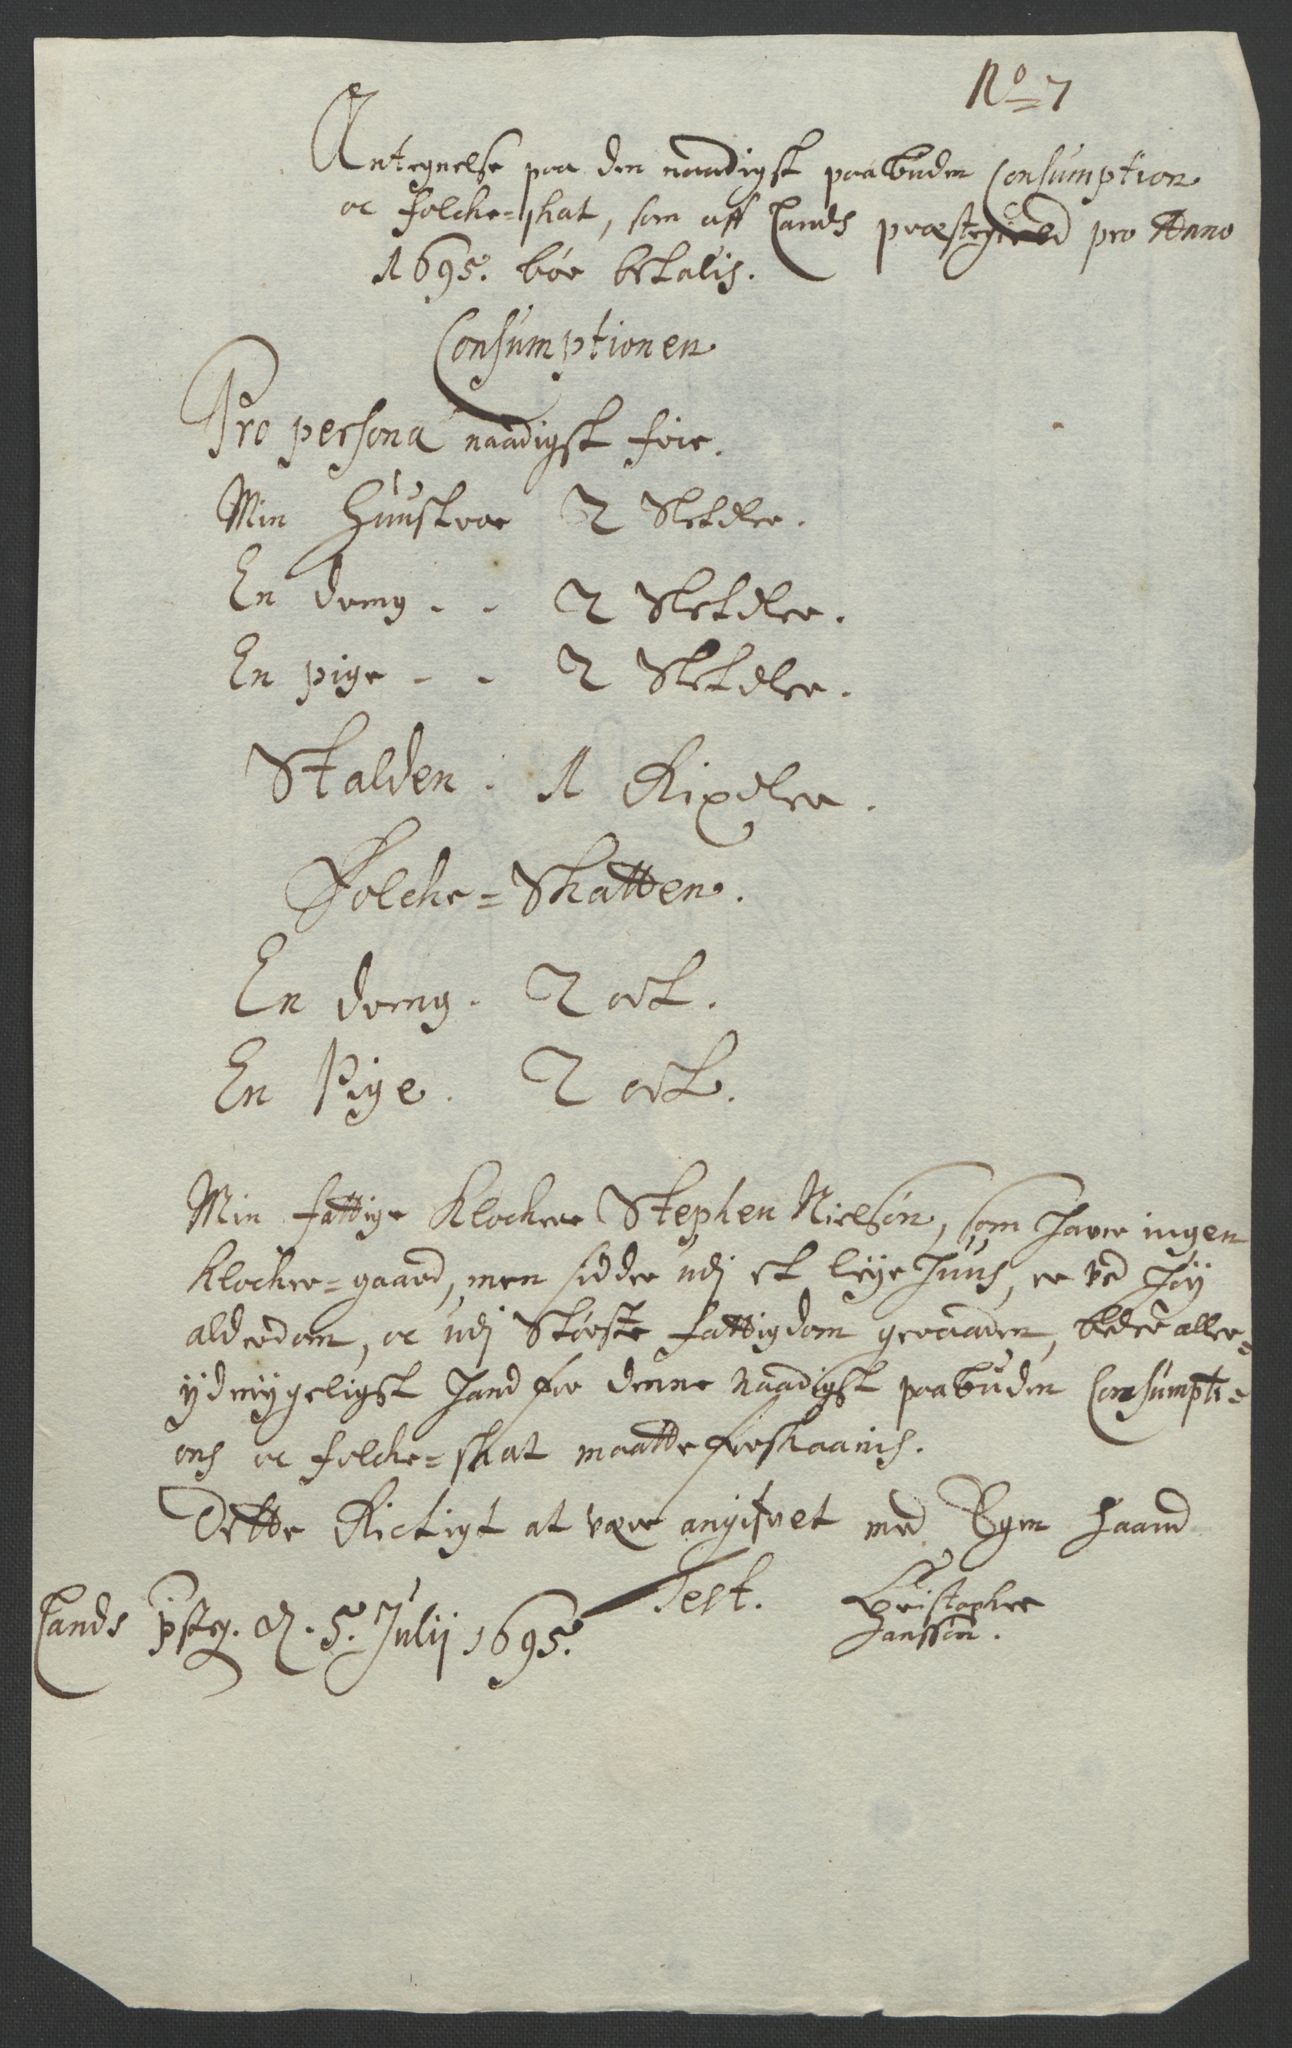 No 7
Antegnelse paa den naadigst paabuden Consumption
oc folche-skat, som aff Lands præstegield pro Anno
1695. bør betalis.
Consumptionen
Pro persona naadigst frie.
Min Hüüstroe 2 Sletdlr.
En dreng - - 2 Sletdler.
En pige - - 2 Sletdler.
Stalden . 1 Rixdler.
Folche-Skatten.
En dreng. 2 ort.
En Pige. 2 ort.
Min fattige Klocker Stephen Nielsøn, som haver ingen
Klocker-gaard, men sidder üdj et leye hüüs, er ved høy
alderdom, oc üdj Største fattigdom geraaden, beder aller-
ydmygeligst hand for denne Naadigst paabuden Consumpti-
ons oc folche-skat maatte forskaanis.
Dette Rictigt at være angifvet med Egen Haand
Test. Christopher
Hanssøn.
Lands psteg. d. 5. Julij 1695.